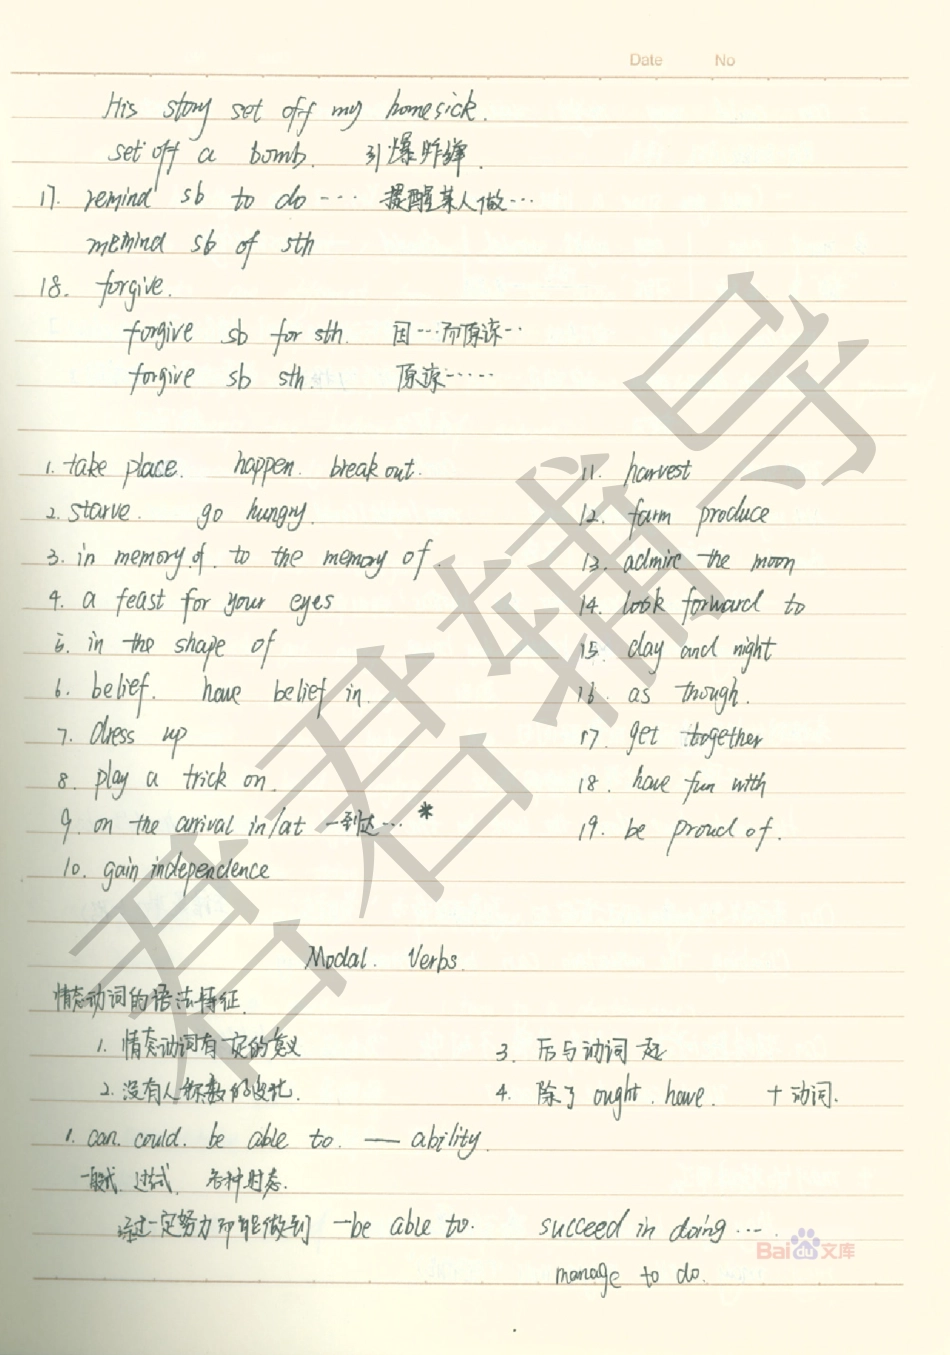 Date No
His story set off my homesick.
set off a bomb. 引爆炸弹.
17. remind sb to do … 提醒某人做…
memind sb of sth
18. forgive.
forgive sb for sth. 因…而原谅…
forgive sb sth. 原谅……
1. take place. happen. break out.
2. starve. go hungry.
3. in memory of. to the memory of.
4. a feast for your eyes
5. in the shape of
6. belief. have belief in.
7. dress up
8. play a trick on.
9. on the arrival in/at 一到达… *
10. gain independence
11. harvest
12. farm produce
13. admire the moon
14. look forward to
15. day and night
16. as though.
17. get together
18. have fun with
19. be proud of.
Modal. Verbs.
情态动词的语法特征.
1. 情态动词有一定的意义
2. 没有人称数的变化.
3. 后与动词一起
4. 除了 ought. have. + 动词.
1. can. could. be able to. — ability.
一般式. 过去式. 各种时态.
通过一定努力而能做到 —be able to. succeed in doing …
manage to do.
君君辅导
Baidu文库